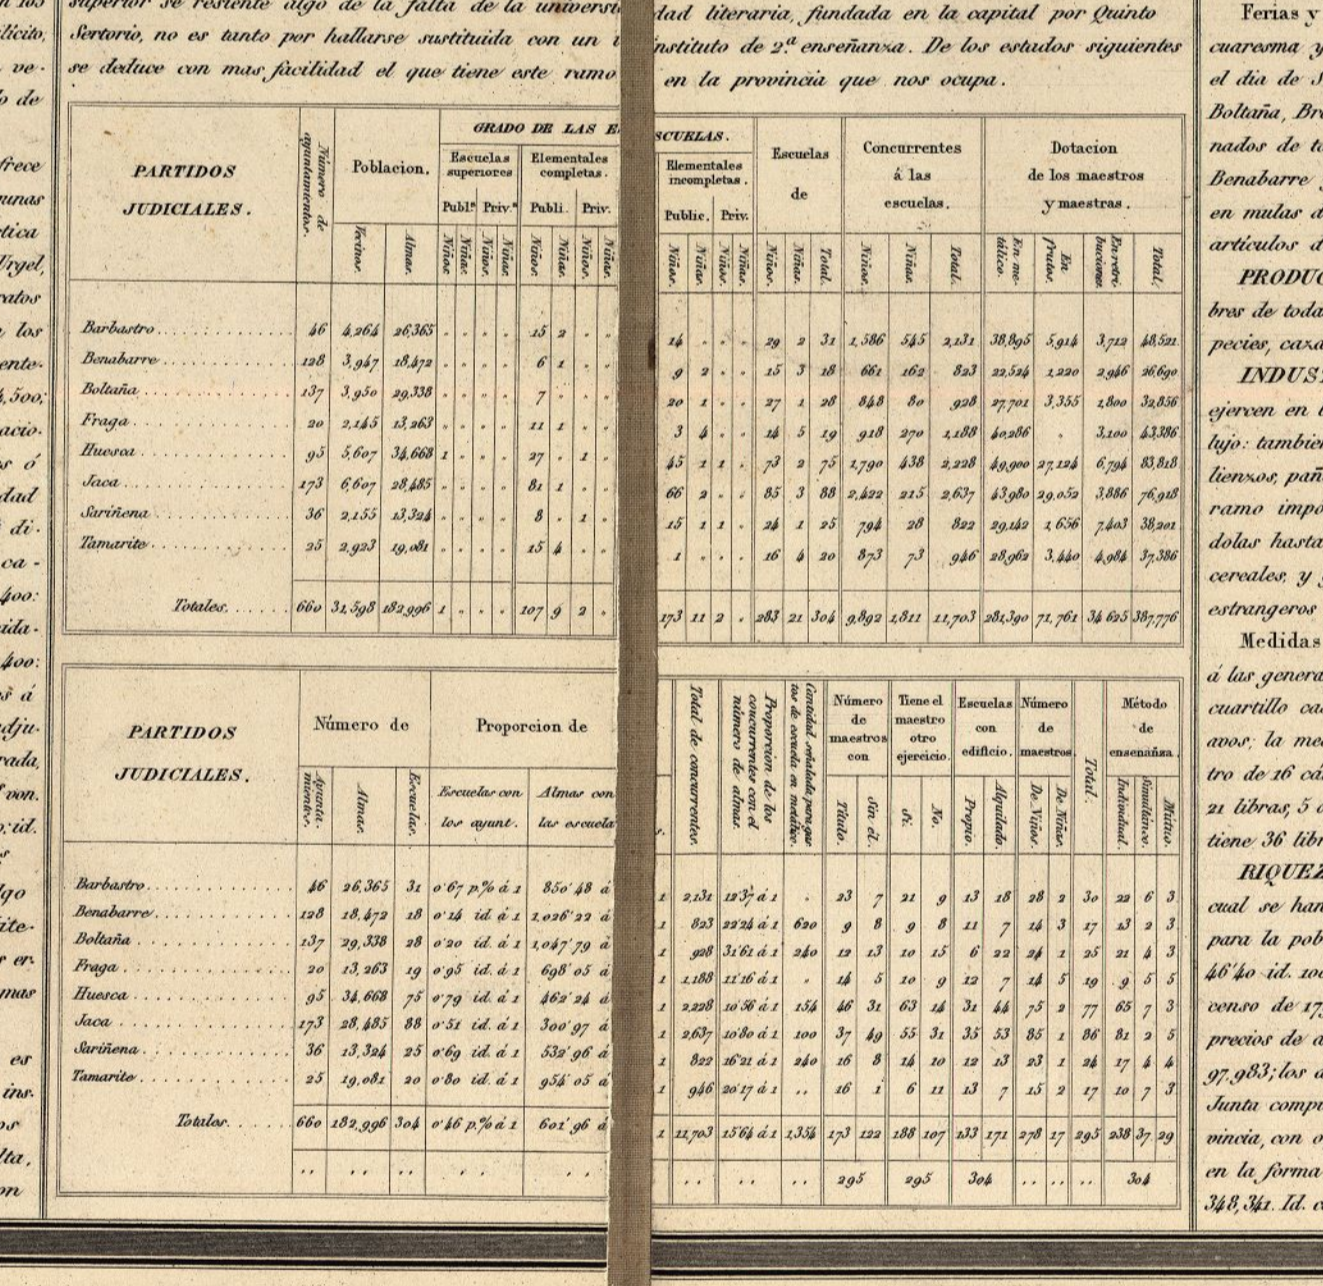 superior se resiente algo de la falta de la universi dad literaria, fundada en la capital por Quinto
Sertorio, no es tanto por hallarse sustituida con un instituto de 2.ª enseñanza. De los estados siguientes
se deduce con mas facilidad el que tiene este ramo en la provincia que nos ocupa.
PARTIDOS JUDICIALES.
Número de ayuntamientos.
Poblacion.
Vecinos. Almas.
GRADO DE LAS ESCUELAS.
Escuelas superiores
Publ.ª Priv.ª
Niños. Niñas. Niños. Niñas.
Elementales completas.
Publi. Priv.
Niños. Niñas. Niños. Niñas.
Elementales incompletas.
Public. Priv.
Niños. Niñas. Niños. Niñas.
Escuelas de
Niños. Niñas. Total.
Concurrentes á las escuelas.
Niños. Niñas. Total.
Dotacion de los maestros y maestras.
En metálico. En frutos. En retribuciones. Total.
Barbastro 46 4,264 26,365 " " " " 15 2 " " 14 " " " 29 2 31 1,586 545 2,131 38,895 5,914 3,712 48,521
Benabarre 128 3,947 18,472 " " " " 6 1 " " 9 2 " " 15 3 18 661 162 823 22,524 1,220 2,946 26,690
Boltaña 137 3,950 29,338 " " " " 7 " " " 20 1 " " 27 1 28 848 80 928 27,701 3,355 1,800 32,856
Fraga 20 2,145 13,263 " " " " 11 1 " " 3 4 " " 14 5 19 918 270 1,188 40,286 " 3,100 43,386
Huesca 95 5,607 34,668 1 " " " 27 " 1 " 45 1 1 " 73 2 75 1,790 438 2,228 49,900 27,124 6,794 83,818
Jaca 173 6,607 28,485 " " " " 81 1 " " 66 2 " " 85 3 88 2,422 215 2,637 43,980 29,052 3,886 76,918
Sariñena 36 2,155 13,324 " " " " 8 " 1 " 15 1 1 " 24 1 25 794 28 822 29,142 1,656 7,403 38,201
Tamarite 25 2,923 19,081 " " " " 15 4 " " 1 " " " 16 4 20 873 73 946 28,962 3,440 4,984 37,386
Totales. 660 31,598 182,996 1 " " " 107 9 2 " 173 11 2 " 283 21 304 9,892 1,811 11,703 281,390 71,761 34,625 387,776
PARTIDOS JUDICIALES.
Número de
Ayuntamientos. Almas. Escuelas.
Proporcion de
Escuelas con los ayunt. Almas con las escuela
Total de concurrentes.
Proporcion de los concurrentes con el número de almas.
Cantidad señalada para gastos de escuela en metálico.
Número de maestros con
Título. Sin él.
Tiene el maestro otro ejercicio.
Si. No.
Escuelas con edificio.
Propio. Alquilado.
Número de maestros.
De Niños. De Niñas.
Total.
Método de enseñanza.
Individual. Simultáneo. Mútuo.
Barbastro 46 26,365 31 0'67 p.% á 1 850'48 á 1 2,131 12'37 á 1 " 23 7 21 9 13 18 28 2 30 22 6 3
Benabarre 128 18,472 18 0'14 id á 1 1,026'22 á 1 823 22'24 á 1 620 9 8 9 8 11 7 14 3 17 13 2 3
Boltaña 137 29,338 28 0'20 id. á 1 1,047'79 á 1 928 31'61 á 1 240 12 13 10 15 6 22 24 1 25 21 4 3
Fraga 20 13,263 19 0'95 id. á 1 698'05 á 1 1,188 11'16 á 1 " 14 5 10 9 12 7 14 5 19 9 5 5
Huesca 95 34,668 75 0'79 id. á 1 462'24 á 1 2,228 10'56 á 1 154 46 31 63 14 31 44 75 2 77 65 7 3
Jaca 173 28,485 88 0'51 id. á 1 300'97 á 1 2,637 10'80 á 1 100 37 49 55 31 35 53 85 1 86 81 2 5
Sariñena 36 13,324 25 0'69 id. á 1 532'96 á 1 822 16'21 á 1 240 16 8 14 10 12 13 23 1 24 17 4 4
Tamarite 25 19,081 20 0'80 id. á 1 954'05 á 1 946 20'17 á 1 .. 16 1 6 11 13 7 15 2 17 10 7 3
Totales. 660 182,996 304 0'46 p.% á 1 601'96 á 1 11,703 15'64 á 1 1,354 173 122 188 107 133 171 278 17 295 238 37 29
295 295 304 304
Ferias y
cuaresma y
el dia de S
Boltaña, Br
nados de t
Benabarre
en mulas d
artículos d
PRODUC
bres de toda
pecies, caza
INDUS
ejercen en l
lujo: tambien
lienzos, pañ
ramo impo
dolas hasta
cereales, y
estrangeros
Medidas
á las genera
cuartillo ca
avos; la me
tro de 16 cá
21 libras, 5
tiene 36 libr
RIQUEZ
cual se han
para la pob
46'40 id. 100
censo de 17
precios de a
97.983; los d
Junta compu
vincia, con o
en la forma
348,341. Id. c